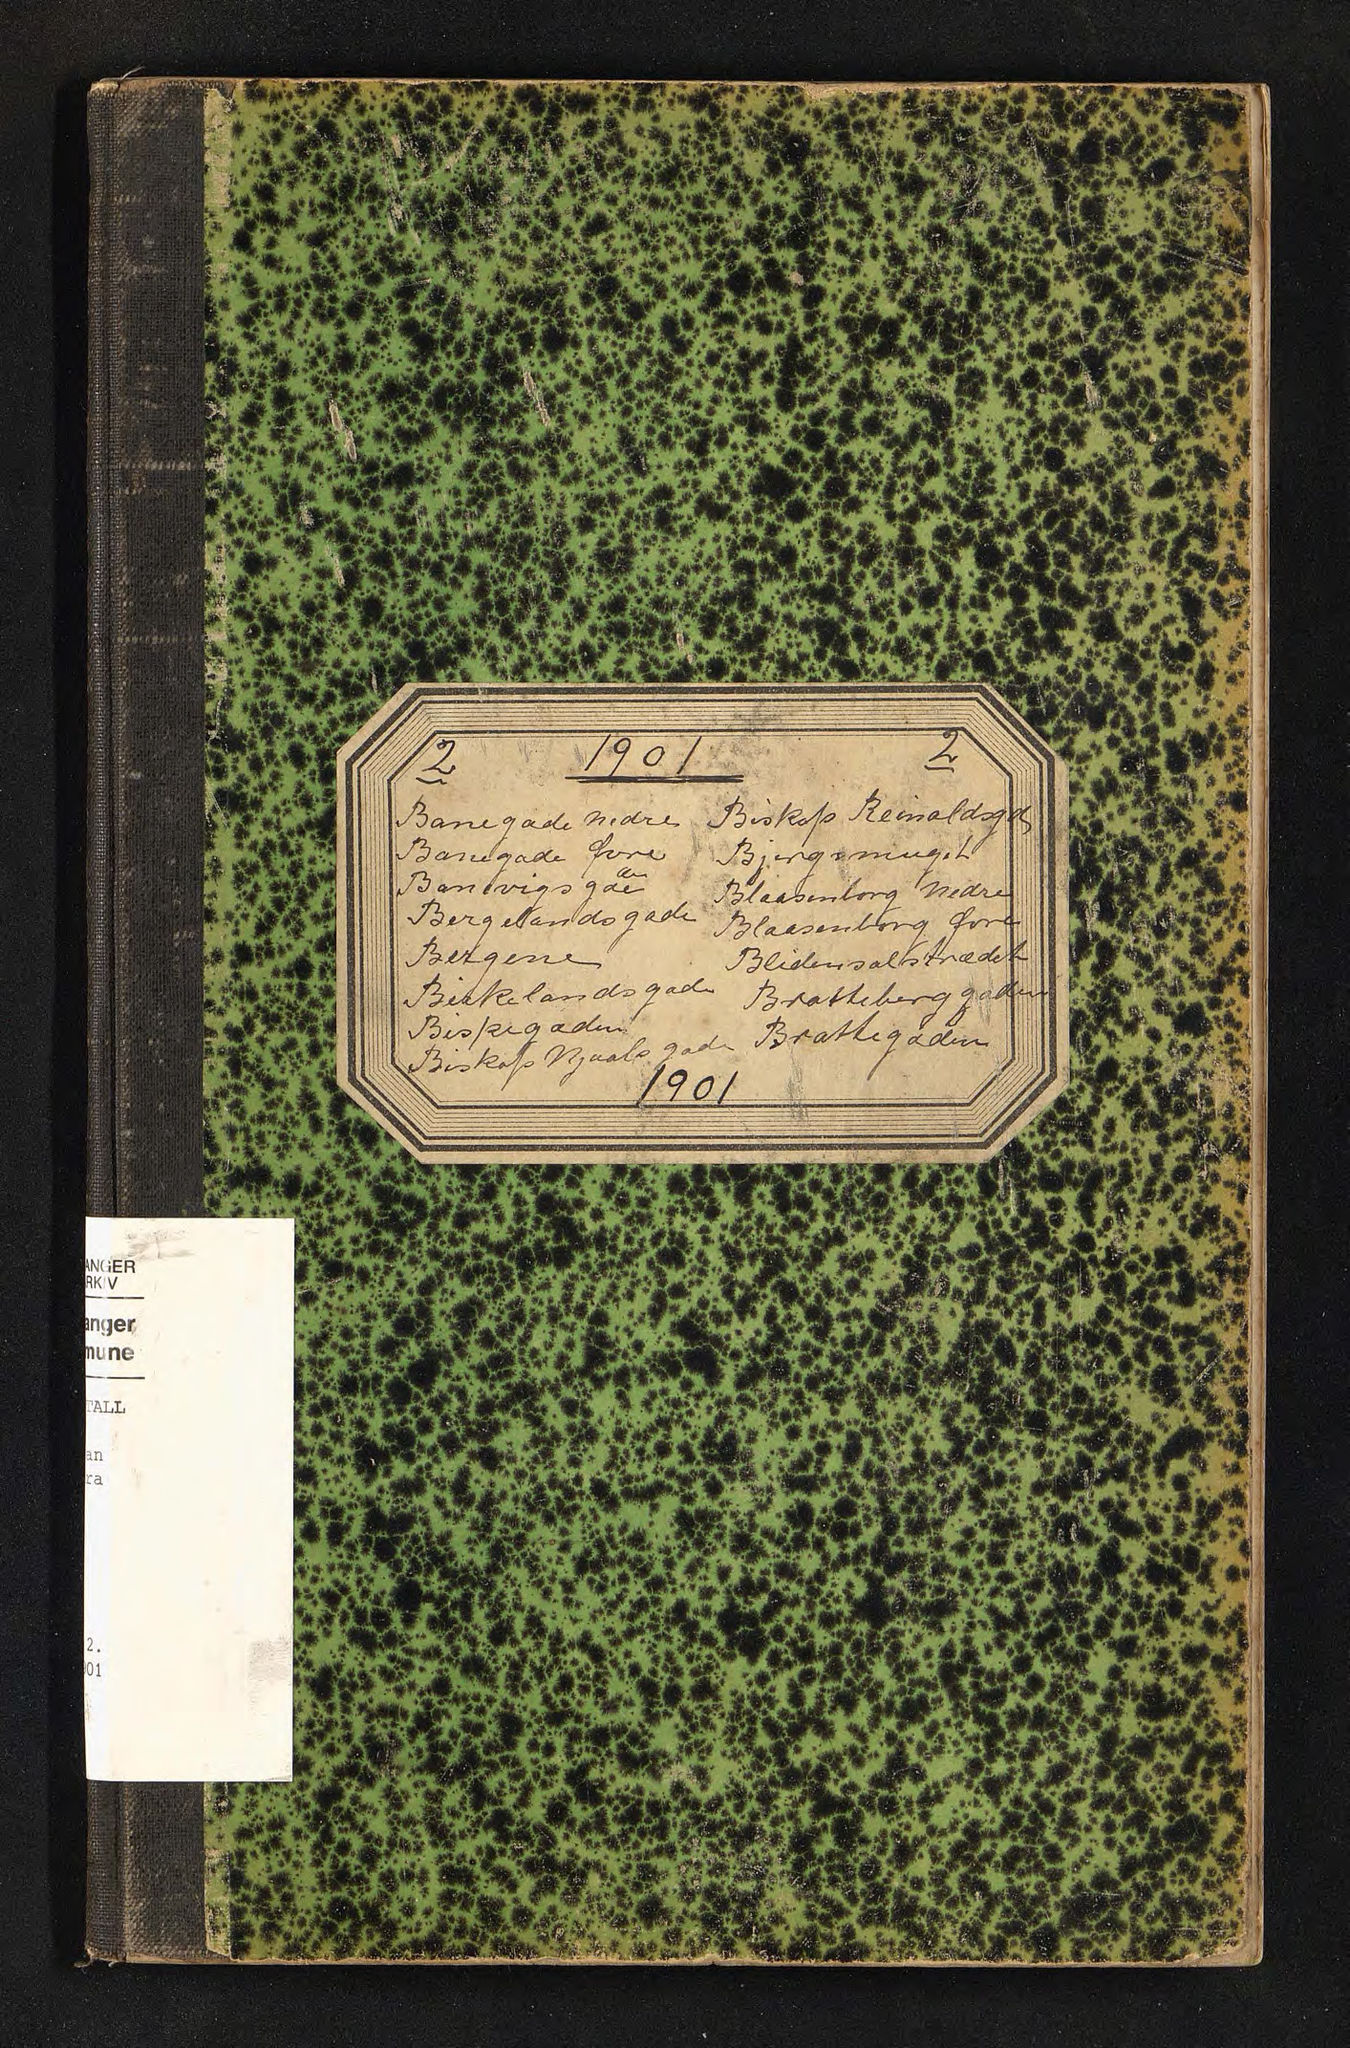 2 1901 2
Banegade nedre
Banegade øvre
Banevigsgade
Bergelandsgade
Bergene
Birkelandsgade
Biskegaden
Biskop Njaals gade
Biskop Reinaldsgd
Bjergsmuget
Blaasenborg nedre
Blaasenborg øvre
Blidensolstrædet
Bratteberggaden
Brattegaden
1901
ANGER
RKIV
anger
mune
TALL
an
ra
2.
901